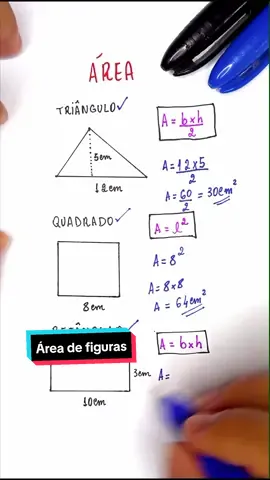 ÁREA
TRIÂNGULO ✓
A = b×h/2
5cm
12cm
A = 12×5/2
A = 60/2 = 30cm²
QUADRADO ✓
A = l²
8cm
A = 8²
A = 8×8
A = 64cm²
Área de figuras
A = b×h
3cm
10cm
A =